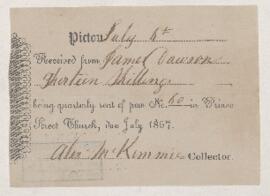 Pictou July 8th
Received from James Dawson
Thirteen Shillings
being quarterly rent of pew No. 60 in Prince
Street Church, due July 1867.
Alex McKimmie Collector.